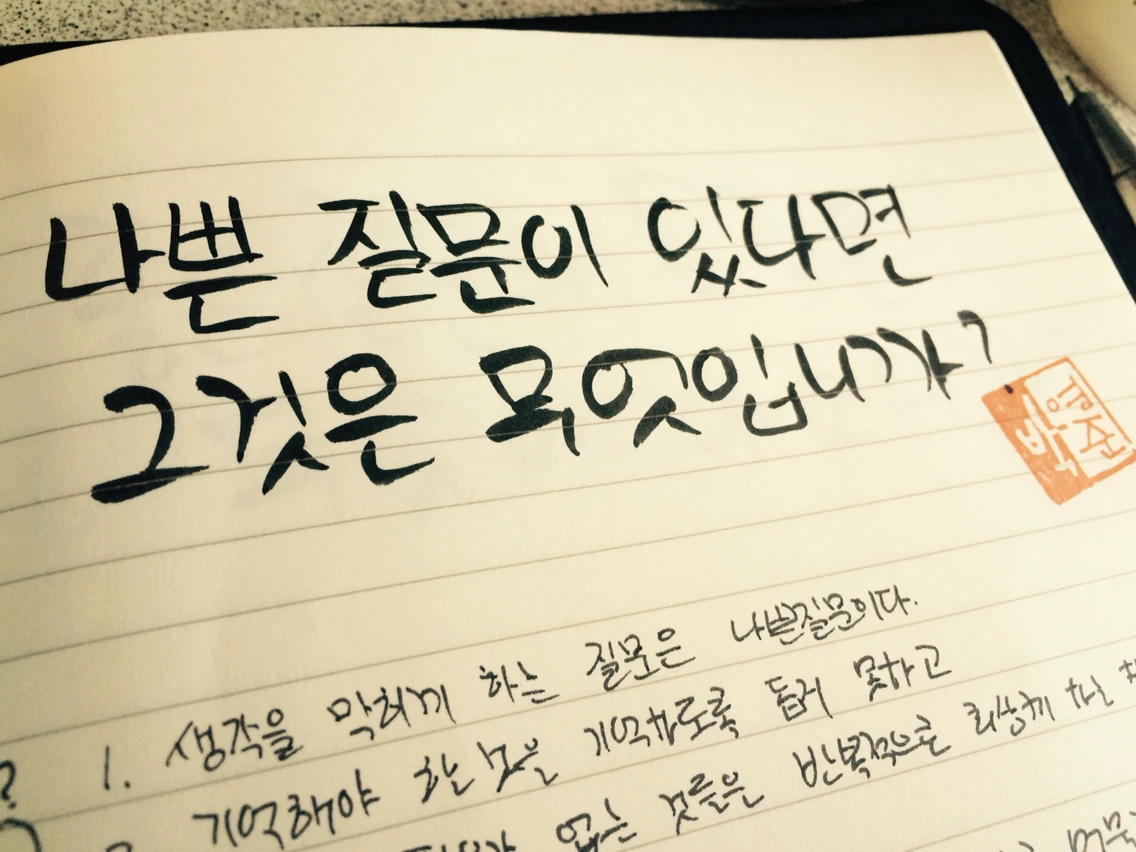 나쁜 질문이 있다면
그것은 무엇입니까?
1. 생각을 막히게 하는 질문은 나쁜질문이다.
기억해야 할 것을 기억하도록 돕지 못하고
없는 것들은 반복적으로 회상케 하는